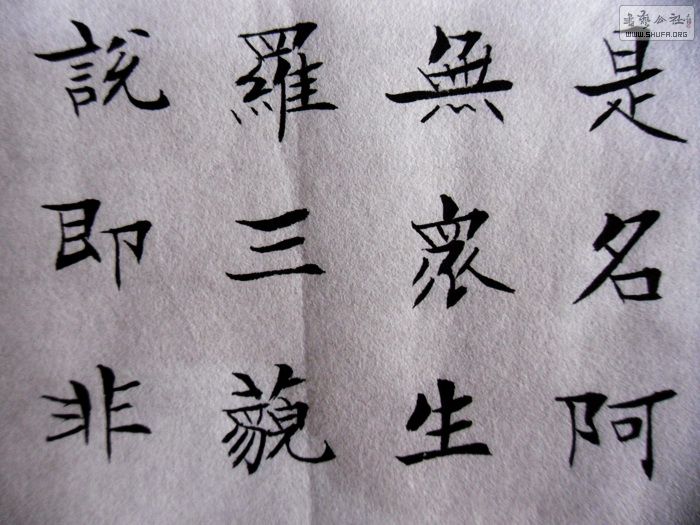 是名阿
無眾生
羅三藐
說即非
書法公社
WWW.SHUFA.ORG